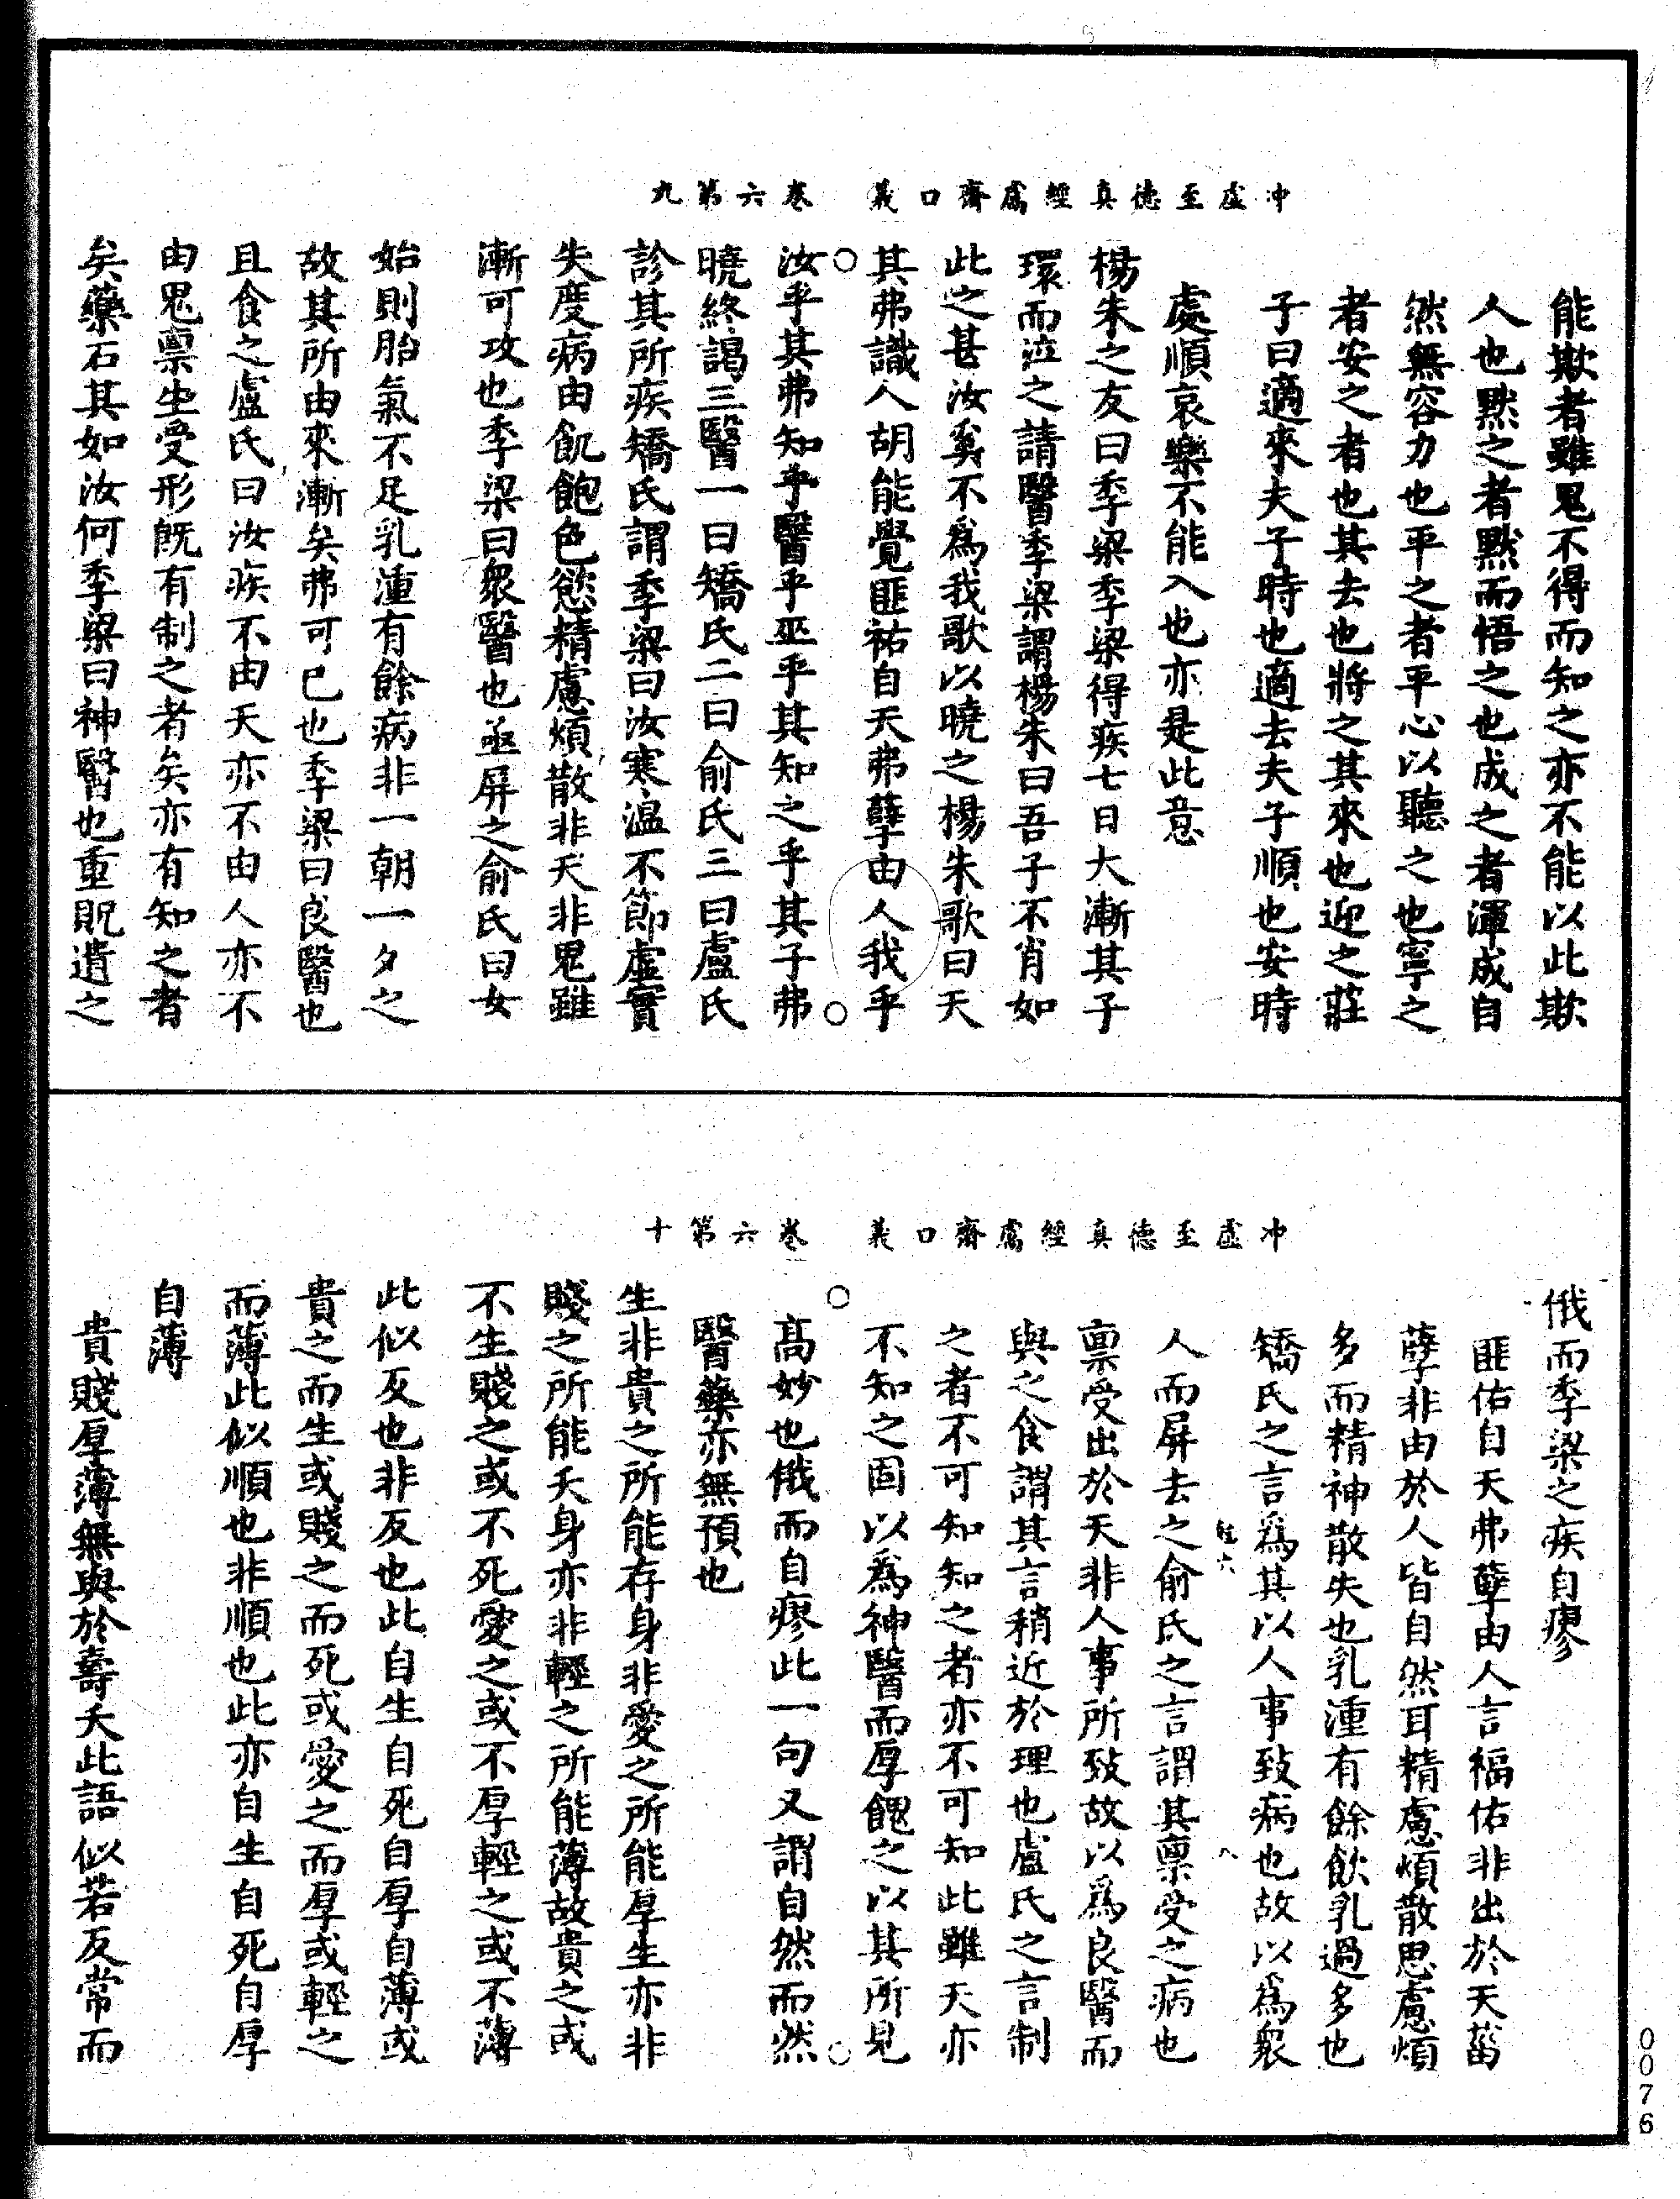 冲虛至德真經鬳齋口義　卷六第九
能欺者雖鬼不得而知之亦不能以此欺
人也黙之者黙而悟之也成之者渾成自
然無容力也平之者平心以聽之也寧之
者安之者也其去也將之其來也迎之莊
子曰適來夫子時也適去夫子順也安時
處順哀樂不能入也亦是此意
楊朱之友曰季梁季梁得疾七日大漸其子
環而泣之請醫季梁謂楊朱曰吾子不肖如
此之甚汝奚不爲我歌以曉之楊朱歌曰天
其弗識人胡能覺匪祐自天弗孽由人我乎
汝乎其弗知乎醫乎巫乎其知之乎其子弗
曉終謁三醫一曰矯氏二曰俞氏三曰盧氏
診其所疾矯氏謂季梁曰汝寒温不節虛實
失度病由飢飽色慾精慮煩散非天非鬼雖
漸可攻也季梁曰衆醫也亟屏之俞氏曰女
始則胎氣不足乳湩有餘病非一朝一夕之
故其所由來漸矣弗可已也季梁曰良醫也
且食之盧氏曰汝疾不由天亦不由人亦不
由鬼禀生受形既有制之者矣亦有知之者
矣藥石其如汝何季梁曰神醫也重貺遣之
冲虛至德真經鬳齋口義　卷六第十
俄而季梁之疾自瘳
匪佑自天弗孽由人言福佑非出於天菑
孽非由於人皆自然耳精慮煩散思慮煩
多而精神散失也乳湩有餘飲乳過多也
矯氏之言爲其以人事致病也故以爲衆
人而屏去之俞氏之言謂其禀受之病也
禀受出於天非人事所致故以爲良醫而
與之食謂其言稍近於理也盧氏之言制
之者不可知知之者亦不可知此雖天亦
不知之固以爲神醫而厚餽之以其所見
高妙也俄而自瘳此一句又謂自然而然
醫藥亦無預也
生非貴之所能存身非愛之所能厚生亦非
賤之所能夭身亦非輕之所能薄故貴之或
不生賤之或不死愛之或不厚輕之或不薄
此似反也非反也此自生自死自厚自薄或
貴之而生或賤之而死或愛之而厚或輕之
而薄此似順也非順也此亦自生自死自厚
自薄
貴賤厚薄無與於壽夭此語似若反常而
0076